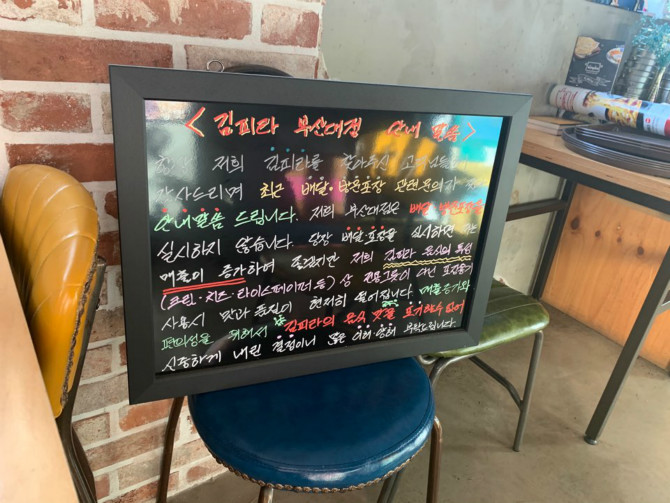 < 김피라 부산대점 안내 말씀 >
항상 저희 김피라를 찾아주신 고객님들께
감사드리며 최근 배달·방문포장 관련문의가
안내말씀 드립니다. 저희 부산대점은 배달·방문포장을
실시하지 않습니다. 당장 배달·포장을 실시하면
매출이 증가하며 좋겠지만 저희 김피라 음식의 특성
(크림·치즈·라이스페이퍼 등) 상 전용그릇이 아닌 포장용기
사용시 맛과 품질이 현저히 떨어집니다. 매출증가와
편의성을 위해서 김피라의 음식 맛을 포기할수 없어
신중하게 내린 결정이니 많은 이해·양해 부탁드립니다.